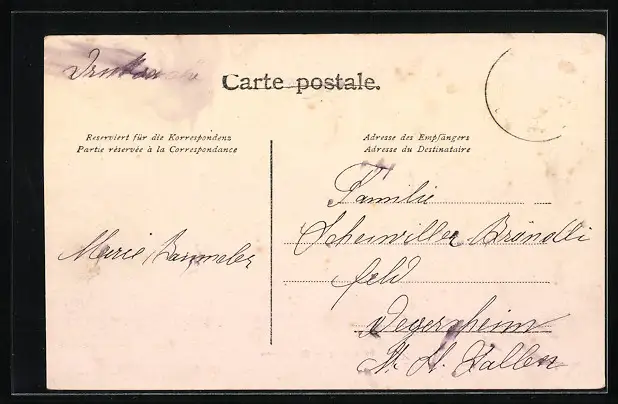 Drucksache
Carte postale.
Reserviert für die Korrespondenz
Partie réservée à la Correspondance
Adresse des Empfängers
Adresse du Destinataire
Familie
Scheiwiller Brändli
feld
Degersheim
Kt. St. Gallen
Marie Baumeler